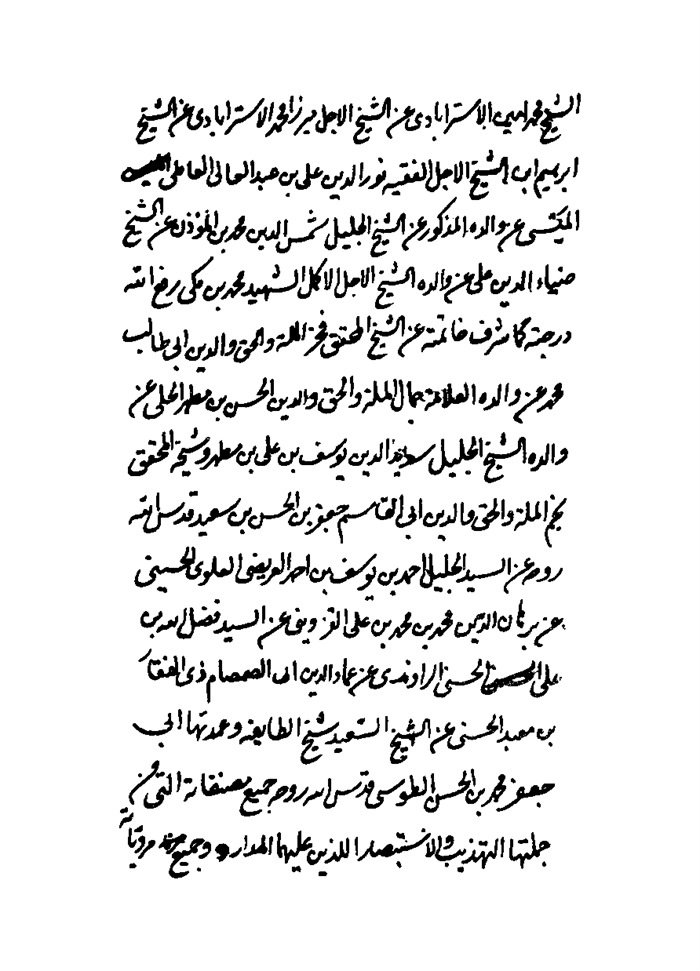 الشيخ محمد امين الاسترابادى عن الشيخ الاجل ميرزا محمد الاسترابادى عن الشيخ
ابرهيم ابن الشيخ الاجل الفقيه نور الدين على بن عبد العالى العاملى
الميسى عن والده المذكور عن الشيخ الجليل شمس الدين محمد بن المؤذن عن الشيخ
ضياء الدين على عن والده الشيخ الاجل الاكمل الشهيد محمد بن مكى رفع الله
درجته كما شرف خاتمته عن الشيخ المحقق فخر الملة والحق والدين ابى طالب
محمد عن والده العلامة جمال الملة والحق والدين الحسن بن مطهر الحلى عن
والده الشيخ الجليل سديد الدين يوسف بن على بن مطهر وشيخه المحقق
نجم الملة والحق والدين ابى القاسم جعفر بن الحسن بن سعيد قدس الله
روحه عن السيد الجليل احمد بن يوسف بن احمر العريضى العلوى الحسينى
عن برهان الدين محمد بن محمد بن على القزوينى عن السيد فضل الله بن
على الحسنى الراوندى عن عماد الدين ابى الصمصام ذى الفقار
بن معبد الحسنى عن الشيخ السعيد شيخ الطايفه وعمدتها ابى
جعفر محمد بن الحسن الطوسى قدس الله روحه جميع مصنفاته التى من
جملتها التهذيب والاستبصار اللذين عليهما المدار وجميع مروياته